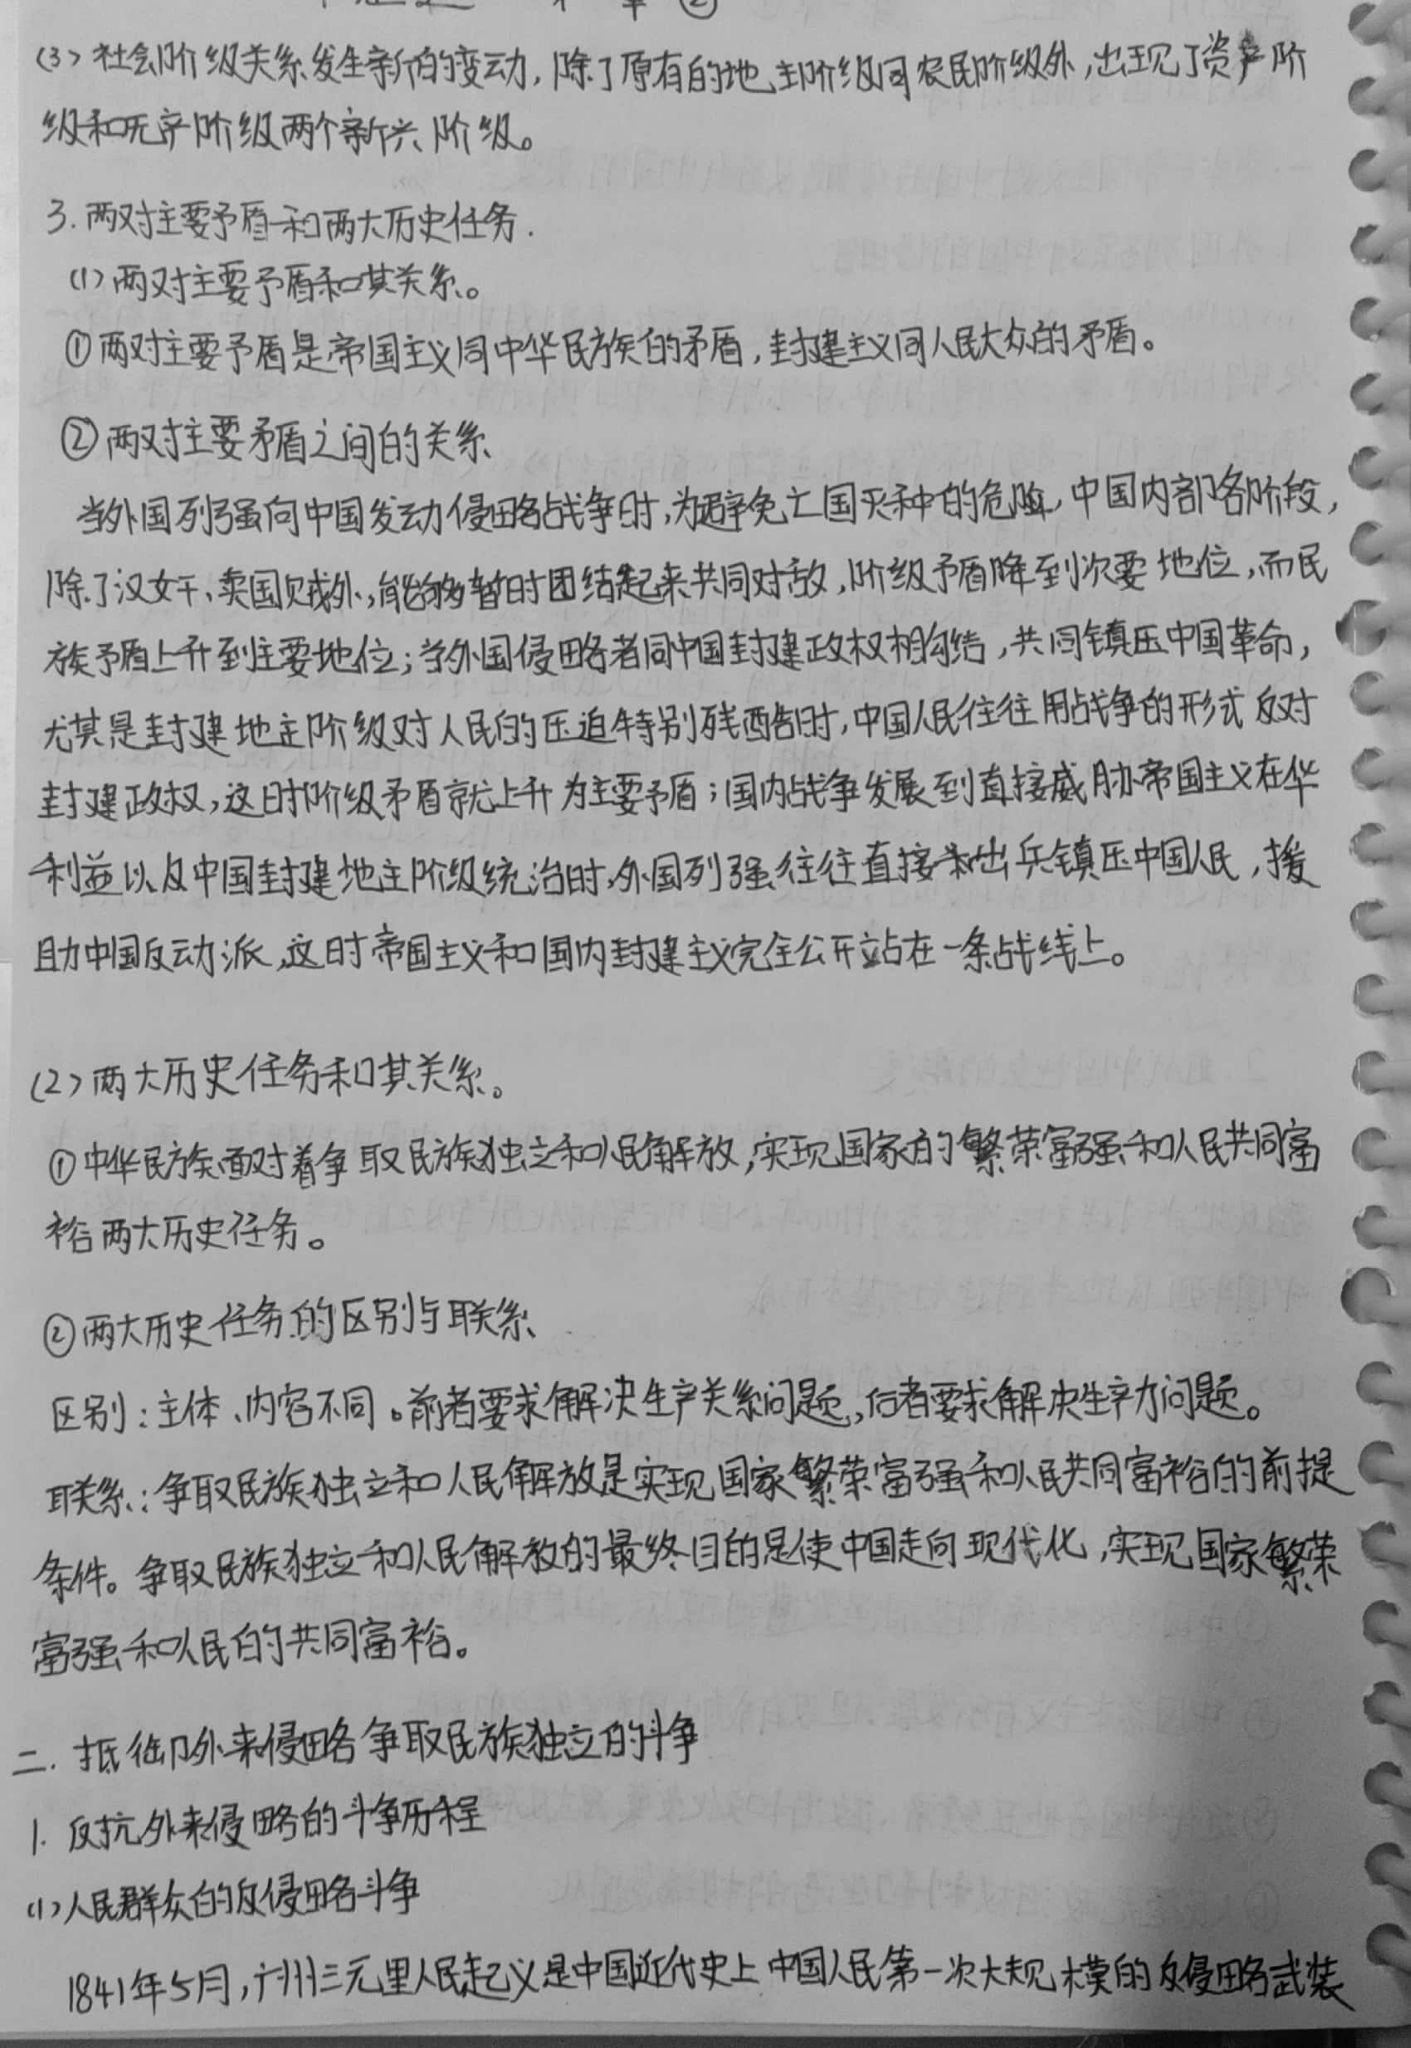 (3) 社会阶级关系发生新的变动，除了原有的地主阶级同农民阶级外，出现了资产阶
级和无产阶级两个新兴阶级。
3. 两对主要矛盾和两大历史任务.
(1) 两对主要矛盾和其关系。
① 两对主要矛盾是帝国主义同中华民族的矛盾，封建主义同人民大众的矛盾。
② 两对主要矛盾之间的关系
当外国列强向中国发动侵略战争时，为避免亡国灭种的危险，中国内部各阶段，
除了汉奸、卖国贼外，能够暂时团结起来共同对敌，阶级矛盾降到次要地位，而民
族矛盾上升到主要地位；当外国侵略者同中国封建政权相勾结，共同镇压中国革命，
尤其是封建地主阶级对人民的压迫特别残酷时，中国人民往往用战争的形式反对
封建政权，这时阶级矛盾就上升为主要矛盾；国内战争发展到直接威胁帝国主义在华
利益以及中国封建地主阶级统治时，外国列强往往直接出兵镇压中国人民，援
助中国反动派，这时帝国主义和国内封建主义完全公开站在一条战线上。
(2) 两大历史任务和其关系。
① 中华民族面对着争取民族独立和人民解放，实现国家的繁荣富强和人民共同富
裕两大历史任务。
② 两大历史任务的区别与联系
区别：主体、内容不同。前者要求解决生产关系问题，后者要求解决生产力问题。
联系：争取民族独立和人民解放是实现国家繁荣富强和人民共同富裕的前提
条件。争取民族独立和人民解放的最终目的是使中国走向现代化，实现国家繁荣
富强和人民的共同富裕。
二. 抵御外来侵略争取民族独立的斗争
1. 反抗外来侵略的斗争历程
(1) 人民群众的反侵略斗争
1841年5月，广州三元里人民起义是中国近代史上中国人民第一次大规模的反侵略武装